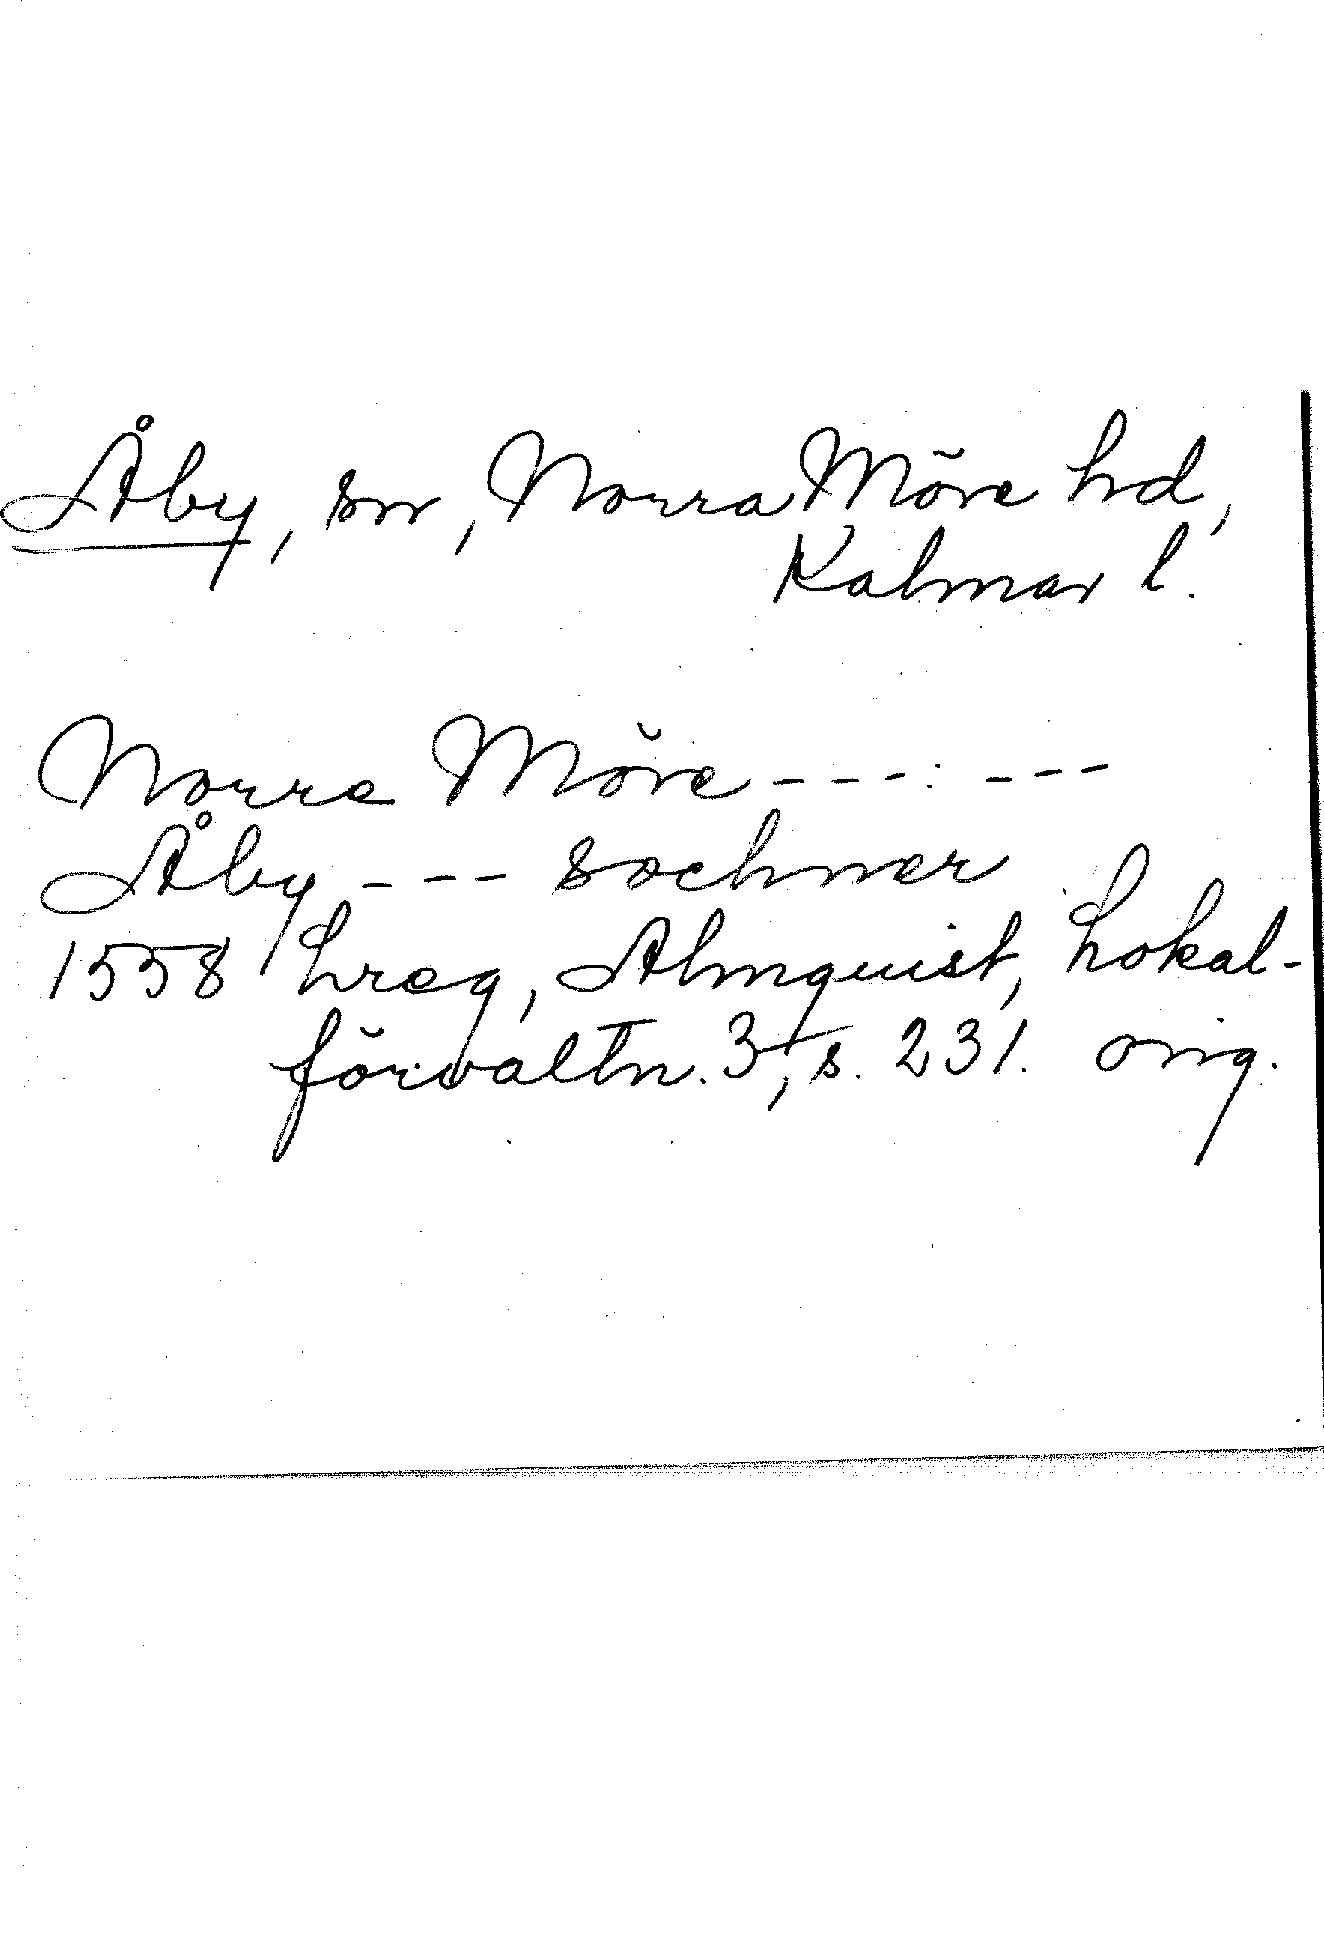 Åby, sn, Norra Möre hd,
Kalmar l.
Norre Möre - - - : - - -
Åby - - - sochner
1558 Lreg, Almquist, Lokal-
förvaltn. 3, s. 231. orig.